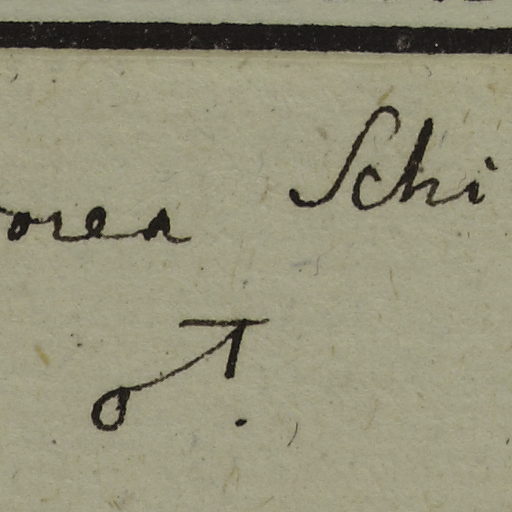 orea Schi
♂.